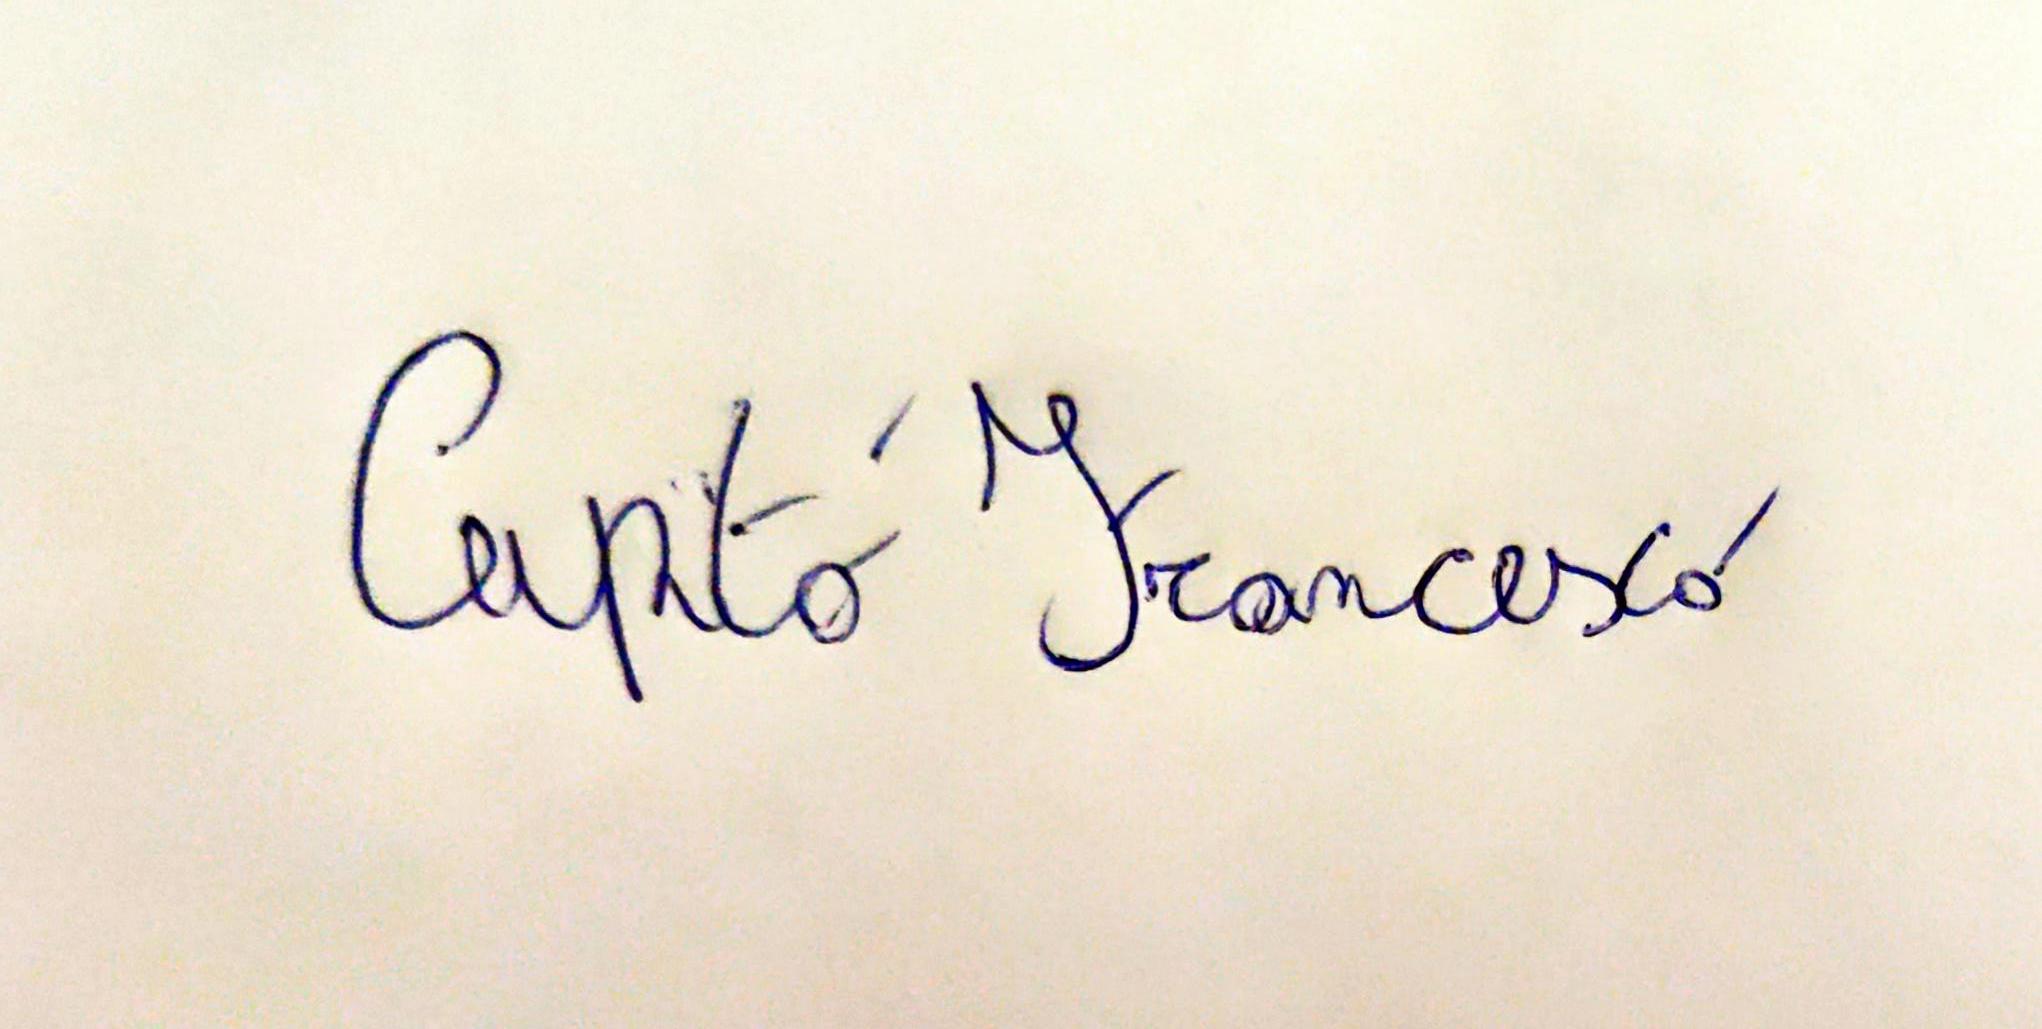 Capitó Francesco